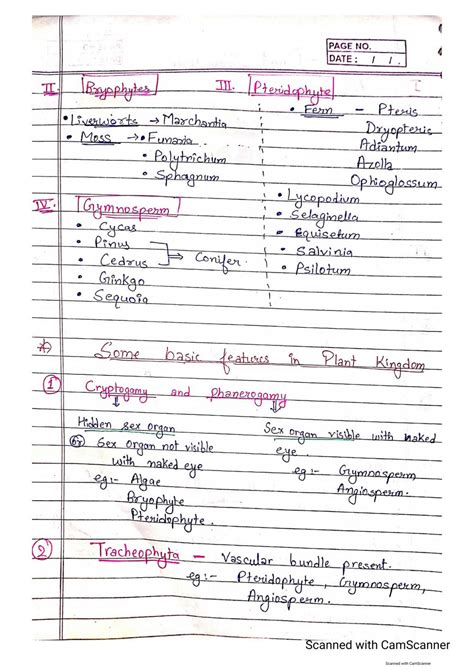 PAGE NO.
DATE : / / .
II. Bryophytes
• Liverworts → Marchantia
• Moss → • Funaria
• Polytrichum
• Sphagnum
III. Pteridophyte
• Fern – Pteris
Dryopteris
Adiantum
Azolla
Ophioglossum
• Lycopodium
• Selaginella
• Equisetum
• Salvinia
• Psilotum
IV. Gymnosperm
• Cycas
• Pinus
• Cedrus
→ Conifer.
• Ginkgo
• Sequoia
Some basic features in Plant Kingdom
① Cryptogamy and phanerogamy
Hidden sex organ
or Sex organ not visible
with naked eye
eg:- Algae
Bryophyte
Pteridophyte.
Sex organ visible with naked
eye.
eg:- Gymnosperm
Angiosperm.
② Tracheophyta – Vascular bundle present.
eg:- Pteridophyte, Gymnosperm,
Angiosperm.
Scanned with CamScanner
Scanned with CamScanner